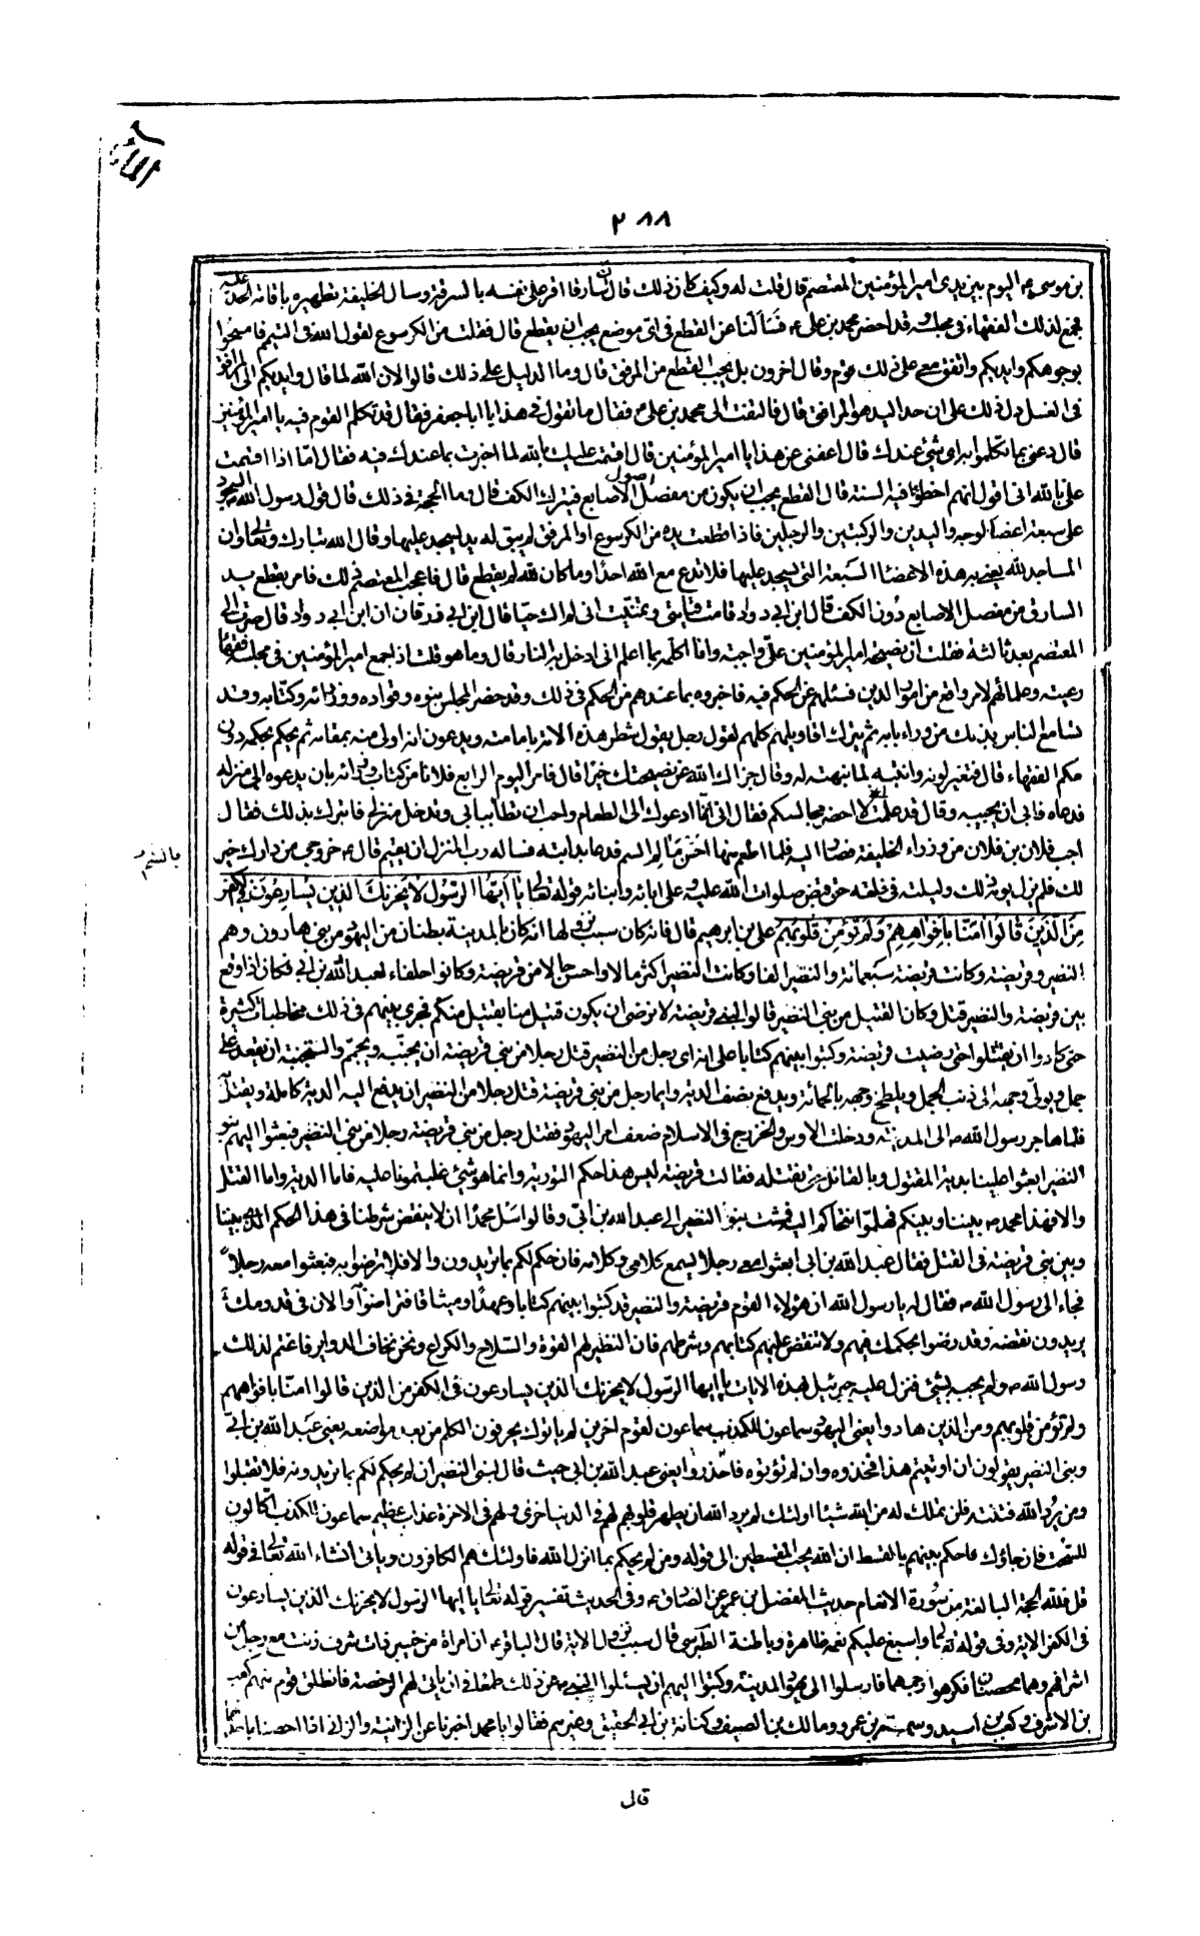 ٢٨٨
بن موسى ع اليوم بين يدى امير المؤمنين المعتصم قال قلت له وكيف كان ذلك قال ان سارقا اقر على نفسه بالسرقة وسال الخليفة تطهيره باقامة الحد عليه
فجمع لذلك الفقهاء فى مجلسه وقد احضر محمد بن على ع فسألنا عن القطع فى اى موضع يجب ان يقطع قال فقلت من الكرسوع لقول الله فى التيمم فامسحوا
بوجوهكم وايديكم واتفق معى على ذلك قوم وقال اخرون بل يجب القطع من المرفق قال وما الدليل على ذلك قالوا لان الله لما قال وايديكم الى المرافق
فى الغسل دل ذلك على ان حد اليد هو المرافق قال فالتفت الى محمد بن على ع فقال ما تقول فى هذا يا ابا جعفر فقال قد تكلم القوم فيه يا امير المؤمنين
قال دعنى بما تكلموا به اى شئ عندك قال اعفنى عن هذا يا امير المؤمنين قال اقسمت عليك بالله لما اخبرت بما عندك فيه فقال اما اذا اقسمت
على بالله انى اقول انهم اخطؤا فيه السنة قال القطع يجب ان يكون من مفصل اصول الاصابع فيترك الكف قال وما الحجة فى ذلك قال قول رسول الله السجود
على سبعة اعضاء الوجه واليدين والركبتين والرجلين فاذا قطعت يده من الكرسوع او المرفق لم يبق له يد يسجد عليها وقال الله تبارك وتعالى وان
المساجد لله يعنى به هذه الاعضاء السبعة التى يسجد عليها فلا تدع مع الله احدا وما كان لله لم يقطع قال فاعجب المعتصم ذلك فامر بقطع يد
السارق من مفصل الاصابع دون الكف قال ابن ابى دواد قامت قيامتى وتمنيت انى لم اك حيا قال ابن ابى زرقان ان ابن ابى دواد قال صرت الى
المعتصم بعد ثالثة فقلت ان نصيحة امير المؤمنين على واجبة وانا اكلمه بما اعلم انى ادخل به النار قال وما هو قلت اذا جمع امير المؤمنين فى مجلسه فقهاء
رعيته وعلمائهم لامر واقع من امور الدين فسئلهم عن الحكم فيه فاخبروه بما عندهم من الحكم فى ذلك وقد حضر المجلس بنوه وقواده ووزرائه وكتابه وقد
تسامع الناس بذلك من وراء بابه ثم يترك اقاويلهم كلهم لقول رجل يقول شطر هذه الامة بامامته ويدعون انه اولى منه بمقامه ثم يحكم بحكمه دون
حكم الفقهاء قال فتغير لونه وانتبه لما نبهته له وقال جزاك الله عن نصيحتك خيرا قال فامر اليوم الرابع فلانا من كتاب وزرائه بان يدعوه الى منزله
فدعاه فابى ان يجيبه وقال قد علمت انى لا احضر مجالسكم فقال انى انما ادعوك الى الطعام واحب ان تطأ ثيابى وتدخل منزلى فاتبرك بذلك فقال
احب فلان بن فلان من وزراء الخليفة فصار اليه فلما اطعم منها احس مآلم السم فدعا بدابته فساله رب المنزل ان يقيم قال ع خروجى من دارك خير
لك فلم يزل يومه ذلك وليلته فى خلفه حتى قبض صلوات الله عليه وعلى ابائه وابنائه قوله تعالى يا ايها الرسول لا يحزنك الذين يسارعون فى الكفر
من الذين قالوا امنا بافواههم ولم تؤمن قلوبهم على بن ابرهيم قال فانه كان سبب نزولها انه كان بالمدينة بطنان من اليهود من بنى هارون وهم
النضير وقريضة وكانت قريضة سبعمائة والنضير الفا وكانت النضير اكثر مالا واحسن حالا من قريضة وكانوا حلفاء لعبد الله بن ابى فكان اذا وقع
بين قريضة والنضير قتل وكان القتيل من بنى النضير قالوا لبنى قريضة لا نرضى ان يكون قتيل منا بقتيل منكم فجرى بينهم فى ذلك مخاطبات كثيرة
حتى كادوا ان يقتتلوا حتى رضيت قريضة وكتبوا بينهم كتابا على انه اى رجل من النضير قتل رجلا من بنى قريضة ان يجنب ويحمم والتجنية ان يقعد على
جمل ويولى وجهه الى ذنب الجمل ويلطخ وجهه بالحمأة ويدفع نصف الدية وايما رجل من بنى قريضة قتل رجلا من النضير ان يدفع اليه الدية كاملة ويقتل به
فلما هاجر رسول الله ص الى المدينة ودخلت الاوس والخزرج فى الاسلام ضعف امر اليهود فقتل رجل من بنى قريضة رجلا من بنى النضير فبعثوا اليهم بنو
النضير ابعثوا الينا بدية المقتول وبالقاتل حتى نقتله فقالت قريضة ليس هذا حكم التورية وانما هو شئ غلبتمونا عليه فاما الدية واما القتل
والا فهذا محمد ص بيننا وبينكم فهلموا نتحاكم اليه فمشت بنو النضير الى عبد الله بن ابى وقالوا سل محمدا ان لا ينقض شرطنا فى هذا الحكم الذى بيننا
وبين بنى قريضة فى القتل فقال عبد الله بن ابى ابعثوا معى رجلا يسمع كلامى وكلامه فان حكم لكم بما تريدون والا فلا ترضوا به فبعثوا معه رجلا
فجاء الى رسول الله ص فقال له يا رسول الله ان هؤلاء القوم قريضة والنضير قد كتبوا بينهم كتابا وعهدا وميثاقا فتراضوا به والان فى قدومك
يريدون نقضه وقد رضوا بحكمك فيهم ولا تنقض عليهم كتابهم وشرطهم فان النظير لهم القوة والسلاح والكراع ونحن نخاف الدواير فاغتم لذلك
رسول الله ص ولم يجبه بشئ فنزل عليه جبرئيل بهذه الايات يا ايها الرسول لا يحزنك الذين يسارعون فى الكفر من الذين قالوا امنا بافواههم
ولم تؤمن قلوبهم ومن الذين هادوا يعنى اليهود سماعون للكذب سماعون لقوم اخرين لم ياتوك يحرفون الكلم من بعد مواضعه يعنى عبد الله بن ابى
وبنى النضير يقولون ان اوتيتم هذا فخذوه وان لم تؤتوه فاحذروا يعنى عبد الله بن ابى حيث قال لبنى النضير ان لم يحكم لكم بما تريدونه فلا تقبلوا
ومن يرد الله فتنته فلن تملك له من الله شيئا اولئك لم يرد الله ان يطهر قلوبهم لهم فى الدنيا خزى ولهم فى الاخرة عذاب عظيم سماعون للكذب اكالون
للسحت فان جاؤك فاحكم بينهم بالقسط ان الله يحب المقسطين الى قوله ومن لم يحكم بما انزل الله فاولئك هم الكافرون وياتى انشاء الله تعالى فى قوله
قل فلله الحجة البالغة من سورة الانعام حديث المفضل بن عمر عن الصادق ع وفى الحديث تفسير قوله تعالى يا ايها الرسول لا يحزنك الذين يسارعون
فى الكفر الاية وفى قوله تعالى واسبغ عليكم نعمه ظاهرة وباطنة الطبرسى قال سبب نزول الاية قال الباقر ع ان امراة من خيبر ذات شرف زنت مع رجل من
اشرافهم وهما محصنان فكرهوا رجمهما فارسلوا الى يهود المدينة وكتبوا اليهم ان يسئلوا النبى ص عن ذلك طمعا فى ان ياتى لهم الرخصة فانطلق قوم منهم كعب
بن الاشرف وكعب بن اسيد وسمية بن عمرو ومالك بن الصيف وكنانة بن ابى الحقيق وغيرهم فقالوا يا محمد اخبرنا عن الزانية والزانى اذا احصنا ما حدهما
قال